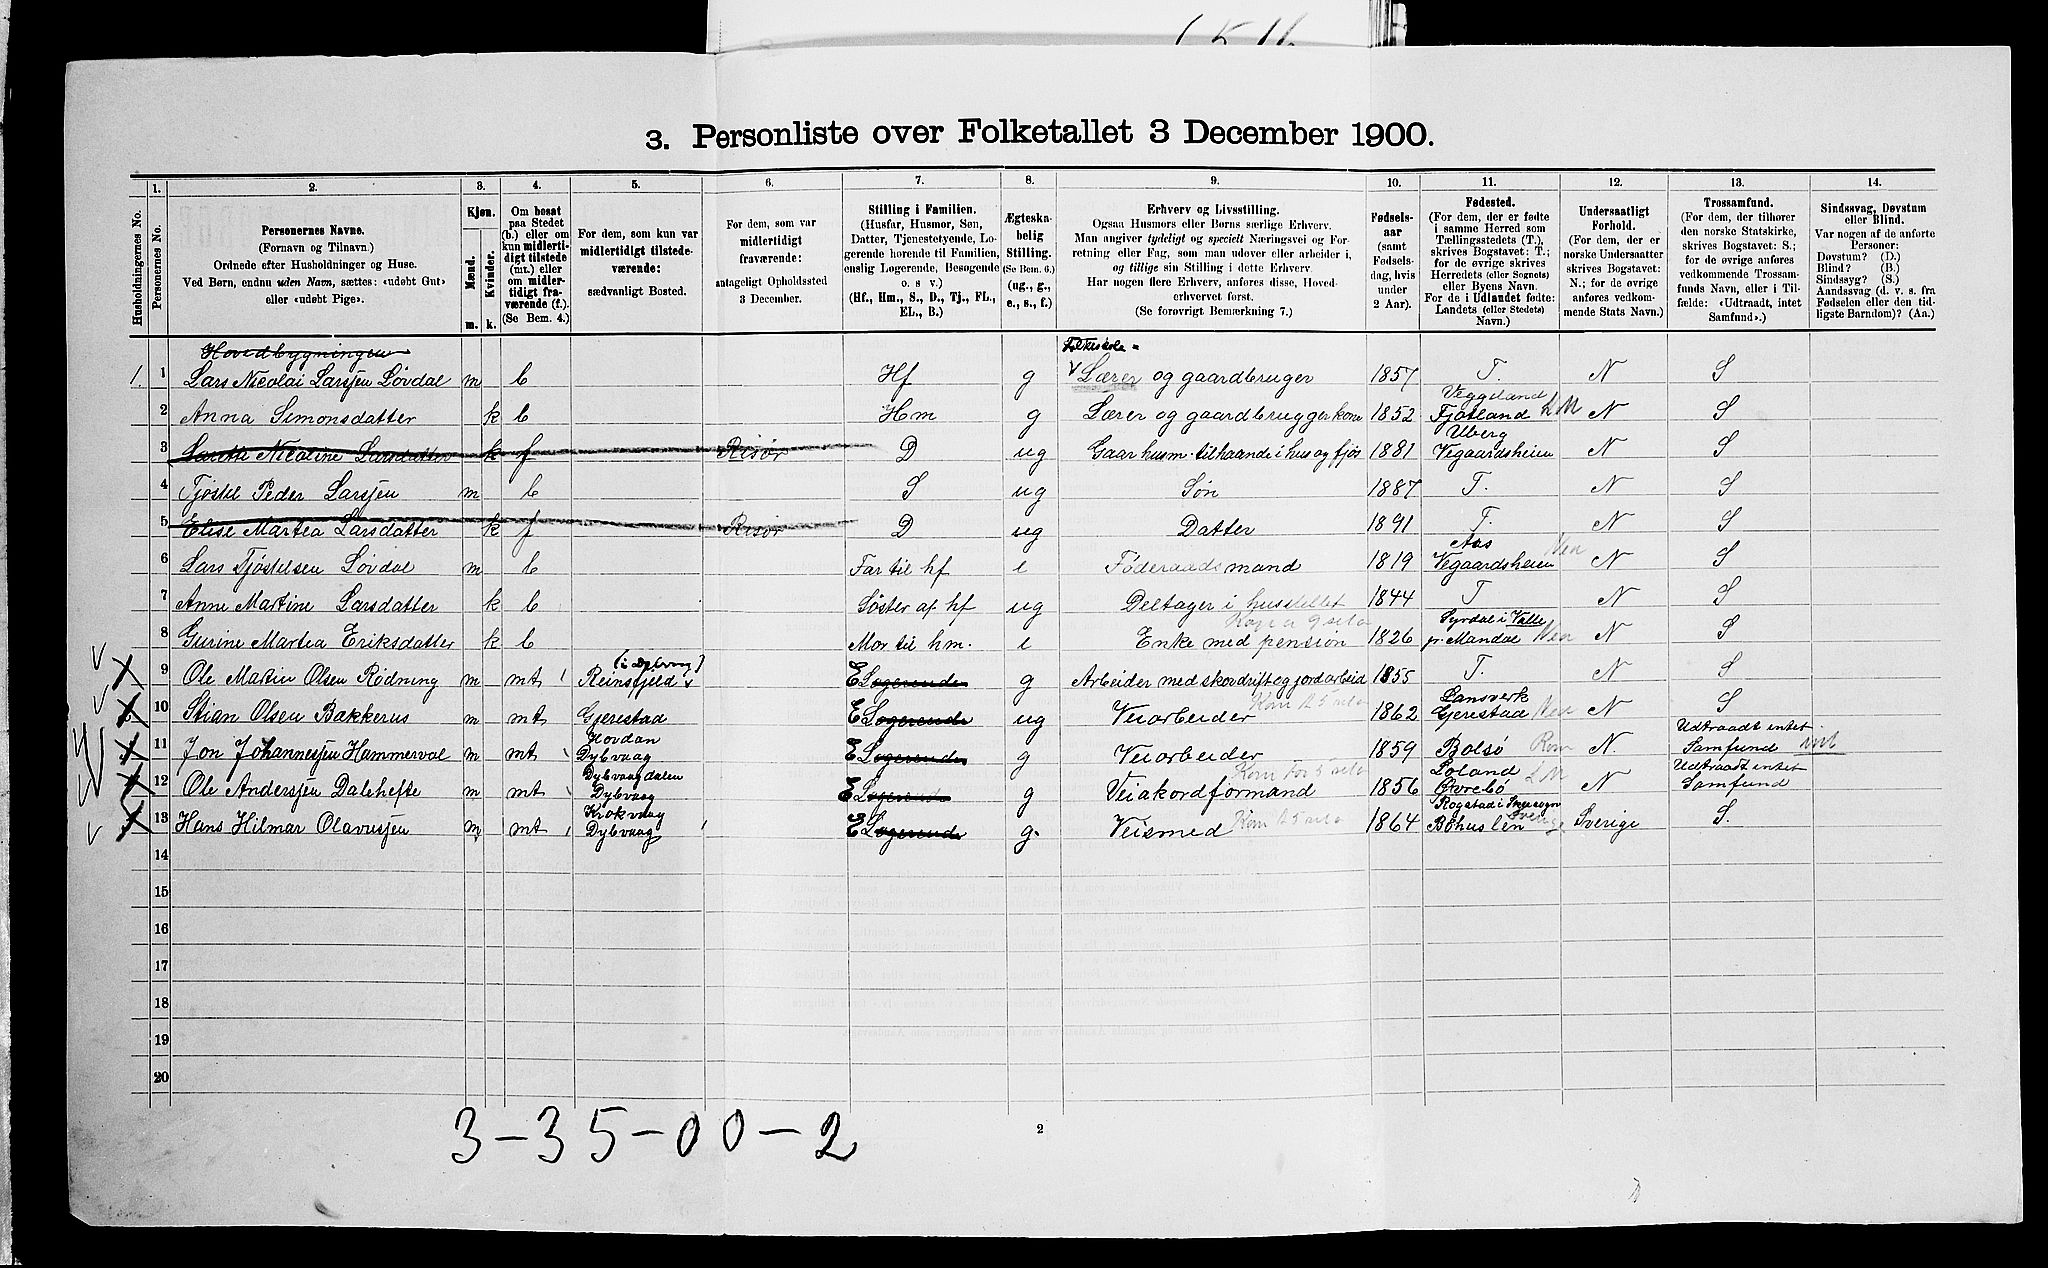 3. Personliste over Folketallet 3 December 1900.
1. 2. 3. 4. 5. 6. 7. 8. 9. 10. 11. 12. 13. 14.
Husholdningernes No.
Personernes No.
Personernes Navne.
(Fornavn og Tilnavn.)
Ordnede efter Husholdninger og Huse.
Ved Børn, endnu uden Navn, sættes: «udøbt Gut»
eller «udøbt Pige».
Kjøn.
Mænd.
Kvinder.
m. k.
Om bosat
paa Stedet
(b.) eller om
kun midlerti-
digt tilstede
(mt.) eller
om midler-
tidigt fra-
værende (f.).
(Se Bem. 4.)
For dem, som kun var
midlertidigt tilstede-
værende:
sædvanligt Bosted.
For dem, som var
midlertidigt
fraværende:
antageligt Opholdssted
3 December.
Stilling i Familien.
(Husfar, Husmor, Søn,
Datter, Tjenestetyende, Lo-
gerende hørende til Familien,
enslig Logerende, Besøgende
o. s v.)
(Hf., Hm., S., D., Tj., FL.,
EL., B.)
Ægteska-
belig
Stilling.
(Se Bem. 6.)
(ug., g.,
e., s., f.)
Erhverv og Livsstilling.
Ogsaa Husmors eller Børns særlige Erhverv.
Man angiver tydeligt og specielt Næringsvei og For-
retning eller Fag, som man udøver eller arbeider i,
og tillige sin Stilling i dette Erhverv.
Har nogen flere Erhverv, anføres disse, Hoved-
erhvervet først.
(Se forøvrigt Bemærkning 7.)
Fødsels-
aar
(samt
Fødsels-
dag, hvis
under
2 Aar).
Fødested.
(For dem, der er fødte
i samme Herred som
Tællingsstedets (T.),
skrives Bogstavet: T.;
for de øvrige skrives
Herredets (eller Sognets)
eller Byens Navn.
For de i Udlandet fødte:
Landets (eller Stedets)
Navn.)
Undersaatligt
Forhold.
(For dem, der er
norske Undersaatter
skrives Bogstavet:
N.; for de øvrige
anføres vedkom-
mende Stats Navn.)
Trossamfund.
(For dem, der tilhører
den norske Statskirke,
skrives Bogstavet: S.;
for de øvrige anføres
vedkommende Trossam-
funds Navn, eller i Til-
fælde: «Udtraadt, intet
Samfund».)
Sindssvag, Døvstum
eller Blind.
Var nogen af de anførte
Personer:
Døvstum? (D.)
Blind? (B.)
Sindssyg? (S.)
Aandssvag (d. v. s. fra
Fødselen eller den tid-
ligste Barndom)? (Aa.)
Hovedbygningen Folkeskole
1. 1 Lars Nicolai Larsjen Løvdal m b Hf g Lærer og gaardbruger 1857 T. N S
Veggeland
2 Anna Simonsdatter k b Hm g Lærer og gaardbrugger kone 1852 Fjotland LM N S
Uberg
3 Larette Nicoline Larsdatter k f Risør D ug Gaar husm. tilhaande i hus og fjøs 1881 Vegaardsheien N S
4 Tjøstel Peder Larsjen m b S ug Søn 1887 T. N S
5 Elise Martea Larsdatter k f Risør D ug Datter 1891 T. N S
Aas
6 Lars Tjøstelsen Løvdal m b Far til hf e Føderaadsmand 1819 Vegaardsheien Nea N S
7 Anne Martine Larsdatter k b Søster af hf ug Deltager i husstellet 1844 T N S
Syrdal i Valle
8 Gurine Martea Eriksdatter k b Mor til hm. e Enke med pension 1826 pr Mandal Nea N S
(i Dybvaag)
9 Ole Martin Olsen Rødning m mt Reinsfjeld E Logerende g Arbeider med skovdrift og jordarbeid 1855 T. N S
Lansverk
10 Stian Olsen Bakkerus m mt Gjerestad E Logerende ug Veiarbeider 1862 Gjerestad Nea N S
Hovdan Udtraadt intet
11 Jon Johannesjen Hammerval m mt Dybvaag E Logerende g Veiarbeider 1859 Bolsø Rom N. Samfund
Dybvaagdalen Loland Udtraadt intet
12 Ole Andersjen Dalehefte m mt Dybvaag E Logerende g Veiakordformand 1856 Øvrebø LM N Samfund
Krokvaag Rogstad i
13 Hans Hilmar Olavusjen m mt Dybvaag E Logerende g. Veismed 1864 Bohuslen Sverige Sverige S.
14
15
16
17
18
19
20
3-35-00-2
2